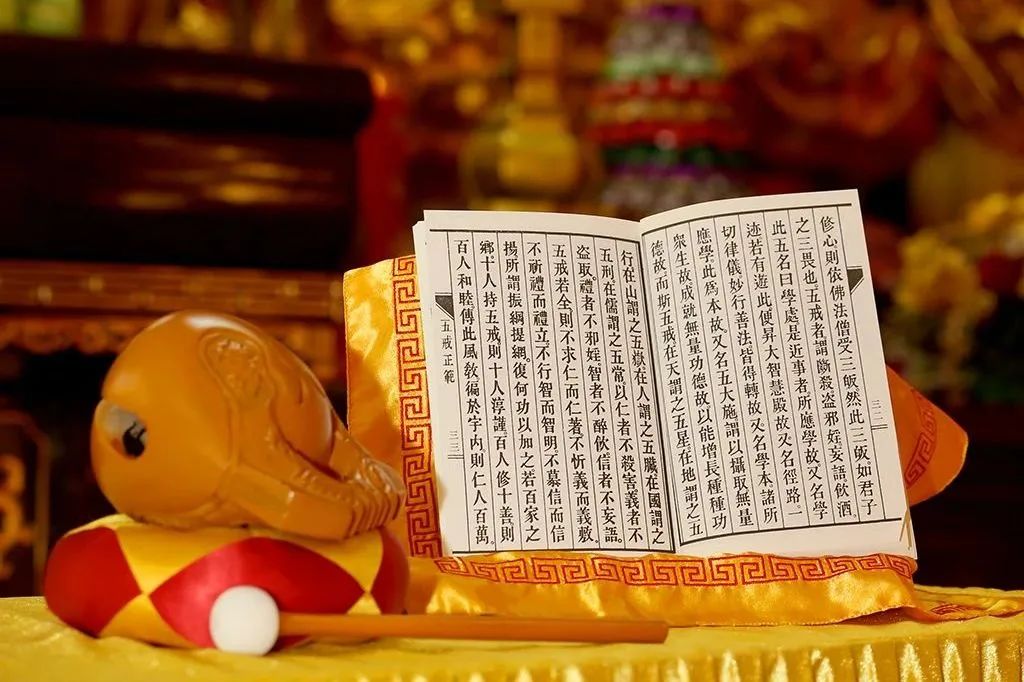 修心則依佛法僧受三皈然此三皈如君子
之三畏也。五戒者謂斷殺盜邪婬妄語飲酒
此五名曰學處是近事者所應學故又名學
迹若有遊此便昇大智慧殿故又名徑路。一
切律儀妙行善法皆得轉故又名學本諸所
應學此為本故又名五大施謂以攝取無量
眾生故成就無量功德故以能增長種種功
德故而斯五戒在天謂之五星在地謂之五
三二
行在山謂之五嶽在人謂之五臟在國謂之
五刑在儒謂之五常以仁者不殺害義者不
盜取。禮者不邪婬智者不醉飲信者不妄語。
五戒若全則不求仁而仁著不忻義而義敷。
不祈禮而禮立不行智而智明。不慕信而信
揚所謂振綱提網。復何功以加之若百家之
鄉十人持五戒則十人淳謹百人修十善則
百人和睦傳此風教徧於宇內則仁人百萬。
五戒正範
三三